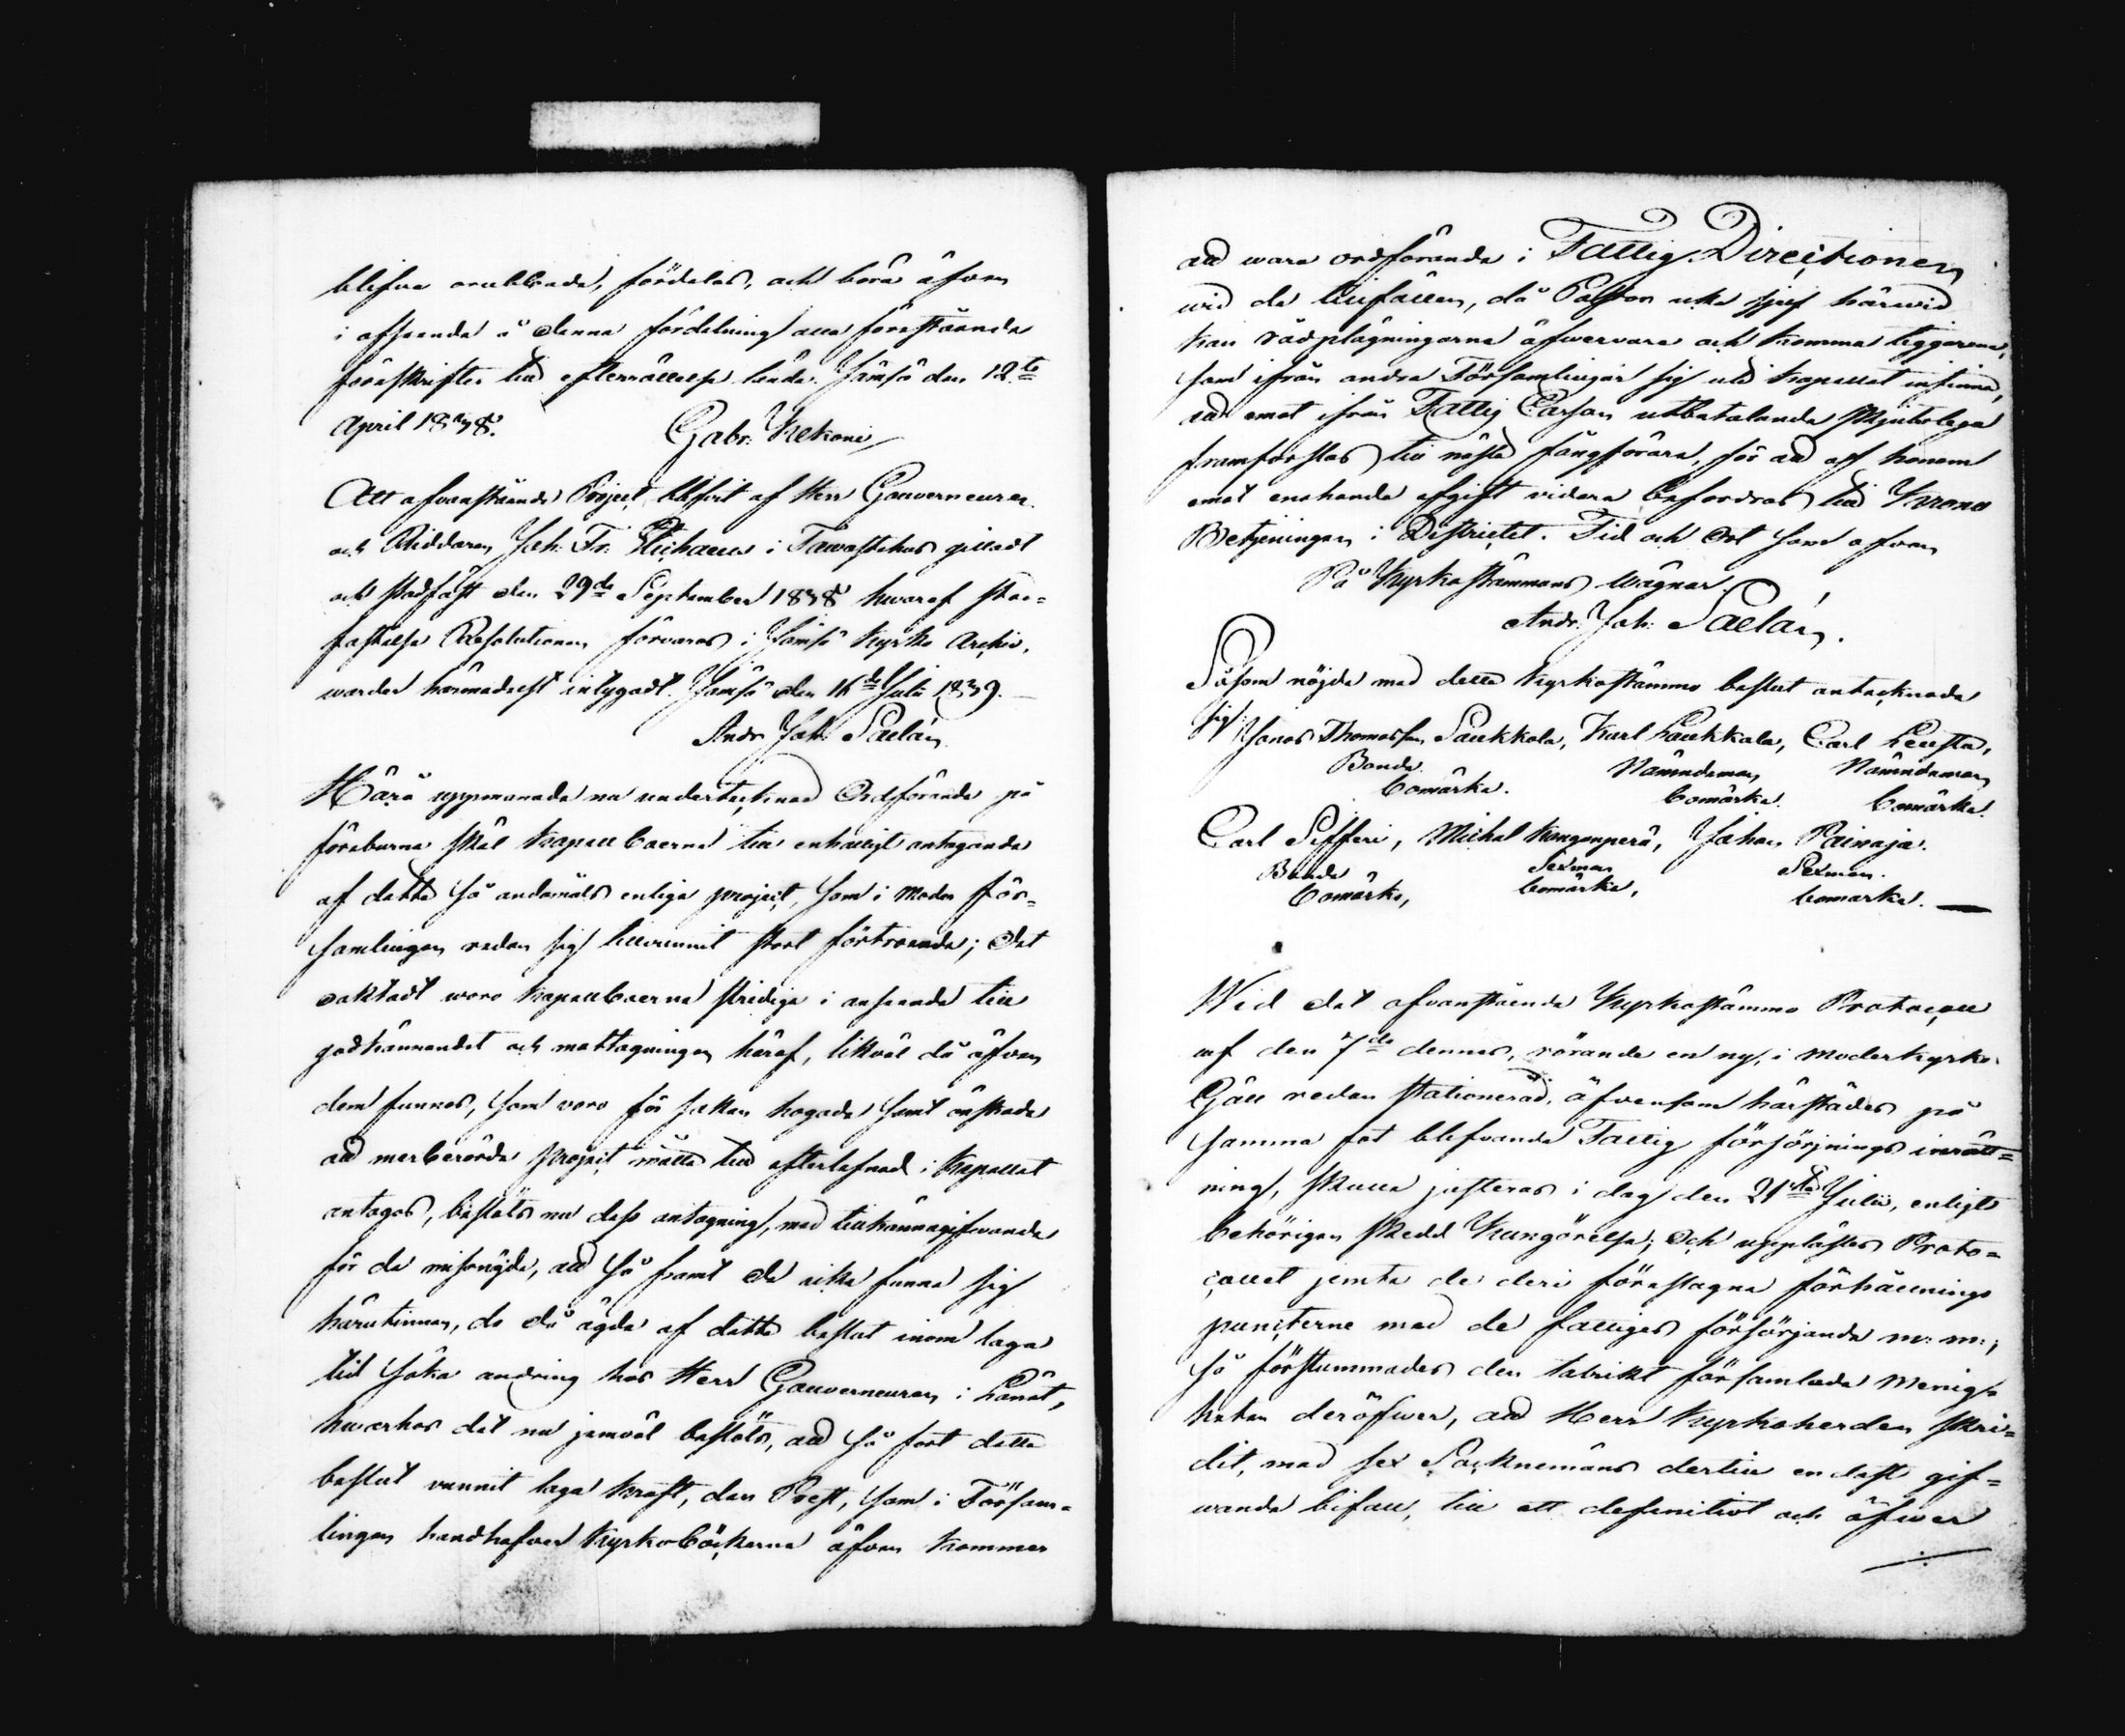 blifva orubbade, fördelas, och böra äfven
i afseende å denna fördelning alla förestående
föreskrifter till efterrättelse lända. Jämsä den 12te
April 1838.
Gabr: Kekoni
Att ofvanstående Project, blifvit af Herr Gouverneuren
och Riddaren Joh: Fr: Stichaeus i Tawastehus gilladt
och stadfäst den 29de September 1838 hwaraf stad=
fästelse Resolutionen förvaras i Jämsä Kyrko Archiv,
warder härmedelst intygadt. Jämsä den 16de Julii 1839.
Andr Joh: Saelán
Härå uppmanade nu undertecknad Ordförande på
föreburna skäl Kapellboerne till enhälligt antagande
af detta så ändamåls enliga project, som i Moder för=
samlingen redan sig tillvunnit stort förtroende; Det
oaktadt woro Kapellboerne stridige i anseende till
godkännandet och mottagningen häraf, likväl då äfven
dem funnos, som voro för saken hogade samt önskade
att merberörde project måtte till efterlefnad i Kapellet
antagas, beslöts nu dess antagning, med tillkännagifvande
för de missnöjde, att så framt de icke funne sig
härutinnan, de då ägde af detta beslut inom laga
tid söka ändring hos Herr Gouverneuren i Länet,
hwarhos det nu jemväl beslöts, att så fort detta
beslut vunnit laga kraft, den Prest, som i Försam=
lingen handhafver Kyrkoböckerna äfven kommer
att wara ordförande i Fattig-Directionen
wid de tillfällen, då Pastor icke sjelf härwid
kan rådplägningarna öfwervara och komma tiggarena,
som ifrån andra Församlingar sig uti Kapellet infinna,
att emot ifrån Fattig Cassan utbetalande skjutslega
framforslas till näste fångförare, för att af honom
emot enahanda afgift vidare befordras till Krono
Betjeningen i Districtet. Tid och Ort som ofvan
På Kyrkostämmans wägnar.
Andr: Joh: Saelán.
Såsom nöjde med detta Kyrkostämmo beslut antecknade
sig: Jonas Thomasson Saukkola, Karl Laukkala, Carl Leusta,
Bonde. Nämndeman Nämndeman
bomärke. bomärke. bomärke.
Carl Sifferi, Michel Kangonperä, Johan Päivaja.
Bonde Sexman Sexman.
bomärke, bomärke, bomärke.
Wid det ofvanstående Kyrkostämmo Protocoll
af den 7de dennes, rörande en ny, i moderkyrko
Gäll redan stationerad, äfvensom härstädes på
samma fot blifvande Fattig försörjnings inrätt=
ning, skulle justeras i dag den 21sta Julii, enligt
behörigen skedd Kungörelse; Och upplästes Proto=
collet jemte de deri föreslagne förhållnings
puncterne med de fattiges försörjande m: m:;
så förstummades den talrikt församlade Menig=
heten deröfwer, att Herr Kyrkoherden skri=
dit, med sex Socknemäns dertill endast gif=
wande bifall, till ett definitivt och öfwer